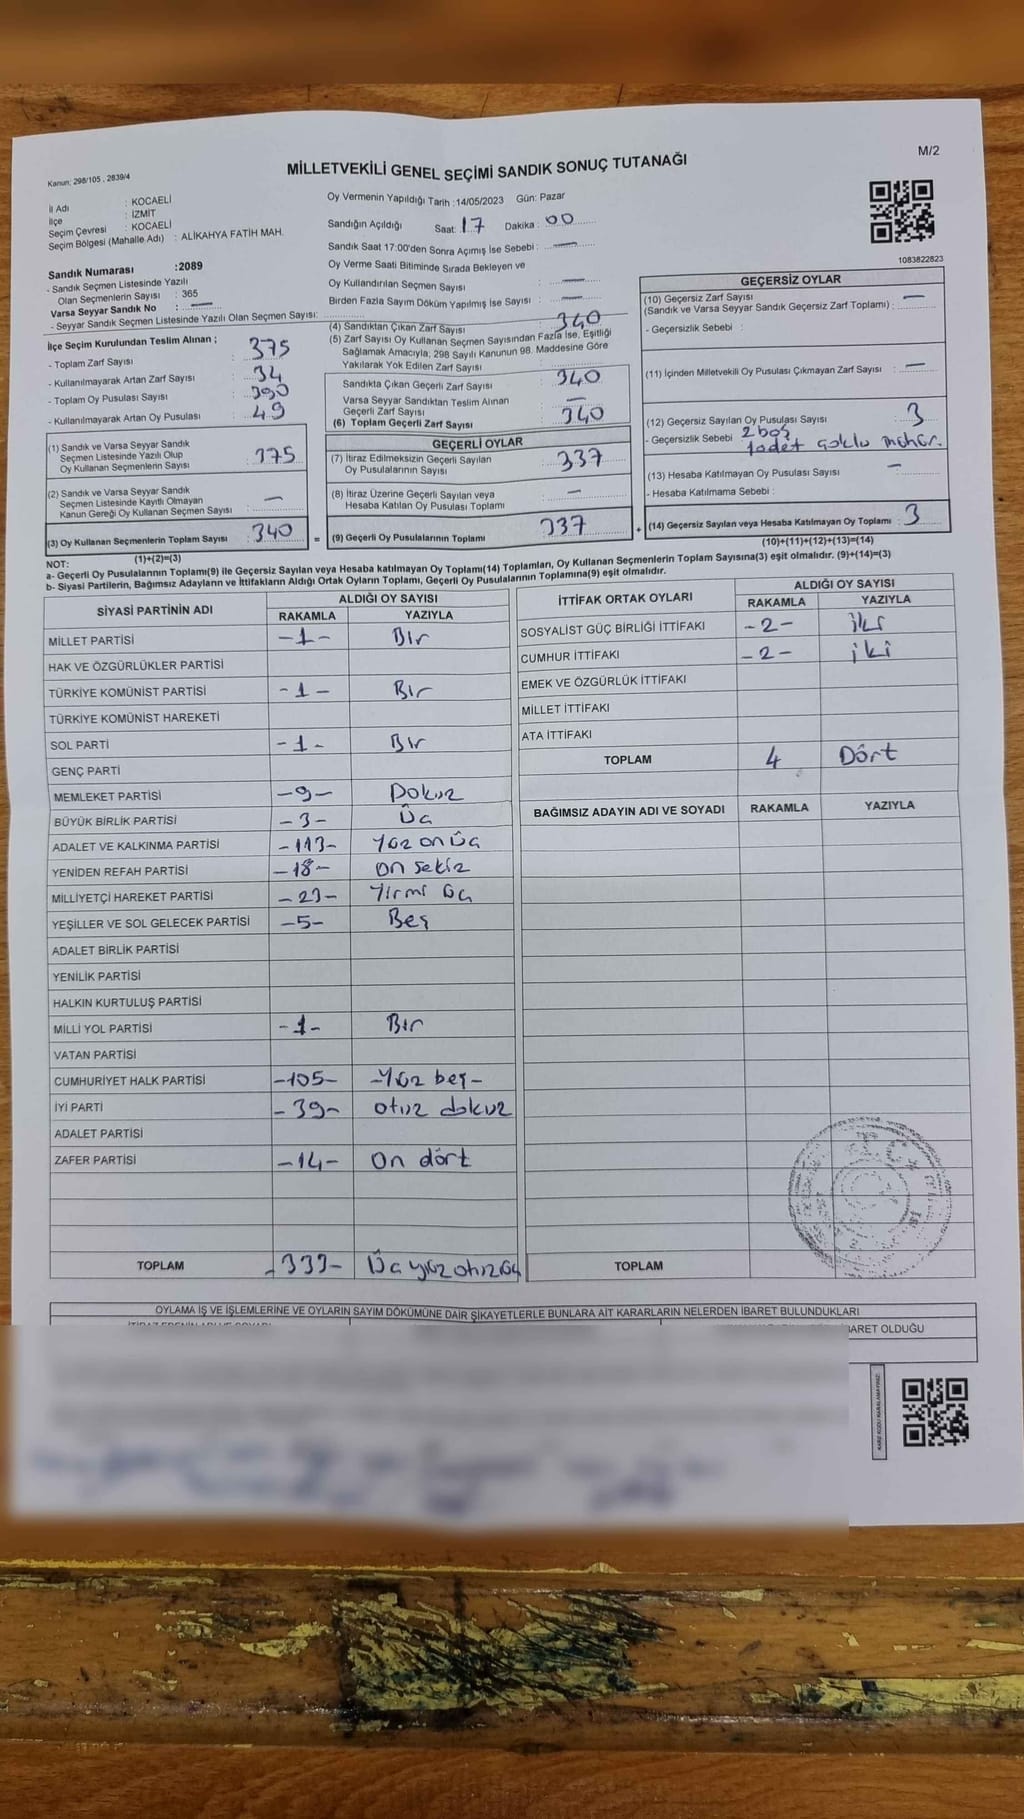 M/2
MİLLETVEKİLİ GENEL SEÇİMİ SANDIK SONUÇ TUTANAĞI
Kanun: 298/105 , 2839/4
İl Adı : KOCAELİ
İlçe : İZMİT
Seçim Çevresi : KOCAELİ
Seçim Bölgesi (Mahalle Adı) : ALİKAHYA FATİH MAH.
Sandık Numarası :2089
- Sandık Seçmen Listesinde Yazılı
Olan Seçmenlerin Sayısı : 365
Varsa Seyyar Sandık No : —
- Seyyar Sandık Seçmen Listesinde Yazılı Olan Seçmen Sayısı:
Oy Vermenin Yapıldığı Tarih :14/05/2023 Gün: Pazar
Sandığın Açıldığı Saat: 17 Dakika : 00
Sandık Saat 17:00'den Sonra Açımış İse Sebebi : —
Oy Verme Saati Bitiminde Sırada Bekleyen ve
Oy Kullandırılan Seçmen Sayısı : —
Birden Fazla Sayım Döküm Yapılmış İse Sayısı : —
1083822823
İlçe Seçim Kurulundan Teslim Alınan ;
- Toplam Zarf Sayısı : 375
- Kullanılmayarak Artan Zarf Sayısı : 34
- Toplam Oy Pusulası Sayısı : 390
- Kullanılmayarak Artan Oy Pusulası : 49
(1) Sandık ve Varsa Seyyar Sandık
Seçmen Listesinde Yazılı Olup
Oy Kullanan Seçmenlerin Sayısı : 375
(2) Sandık ve Varsa Seyyar Sandık
Seçmen Listesinde Kayıtlı Olmayan
Kanun Gereği Oy Kullanan Seçmen Sayısı : —
(3) Oy Kullanan Seçmenlerin Toplam Sayısı : 340
(1)+(2)=(3)
(4) Sandıktan Çıkan Zarf Sayısı : 340
(5) Zarf Sayısı Oy Kullanan Seçmen Sayısından Fazla İse, Eşitliği
Sağlamak Amacıyla; 298 Sayılı Kanunun 98. Maddesine Göre
Yakılarak Yok Edilen Zarf Sayısı :
Sandıkta Çıkan Geçerli Zarf Sayısı : 340
Varsa Seyyar Sandıktan Teslim Alınan
Geçerli Zarf Sayısı : —
(6) Toplam Geçerli Zarf Sayısı : 340
GEÇERLİ OYLAR
(7) İtiraz Edilmeksizin Geçerli Sayılan
Oy Pusulalarının Sayısı : 337
(8) İtiraz Üzerine Geçerli Sayılan veya
Hesaba Katılan Oy Pusulası Toplamı : —
= (9) Geçerli Oy Pusulalarının Toplamı : 337 +
GEÇERSİZ OYLAR
(10) Geçersiz Zarf Sayısı
(Sandık ve Varsa Seyyar Sandık Geçersiz Zarf Toplamı) : —
- Geçersizlik Sebebi :
(11) İçinden Milletvekili Oy Pusulası Çıkmayan Zarf Sayısı : —
(12) Geçersiz Sayılan Oy Pusulası Sayısı : 3
- Geçersizlik Sebebi : 2 boş
1 adet çoklu mühür.
(13) Hesaba Katılmayan Oy Pusulası Sayısı : —
- Hesaba Katılmama Sebebi :
(14) Geçersiz Sayılan veya Hesaba Katılmayan Oy Toplamı : 3
(10)+(11)+(12)+(13)=(14)
NOT:
a- Geçerli Oy Pusulalarının Toplamı(9) ile Geçersiz Sayılan veya Hesaba katılmayan Oy Toplamı(14) Toplamları, Oy Kullanan Seçmenlerin Toplam Sayısına(3) eşit olmalıdır. (9)+(14)=(3)
b- Siyasi Partilerin, Bağımsız Adayların ve İttifakların Aldığı Ortak Oyların Toplamı, Geçerli Oy Pusulalarının Toplamına(9) eşit olmalıdır.
SİYASİ PARTİNİN ADI ALDIĞI OY SAYISI
RAKAMLA YAZIYLA
MİLLET PARTİSİ -1- Bir
HAK VE ÖZGÜRLÜKLER PARTİSİ
TÜRKİYE KOMÜNİST PARTİSİ -1- Bir
TÜRKİYE KOMÜNİST HAREKETİ
SOL PARTİ -1- Bir
GENÇ PARTİ
MEMLEKET PARTİSİ -9- Dokuz
BÜYÜK BİRLİK PARTİSİ -3- Üç
ADALET VE KALKINMA PARTİSİ -113- Yüz on üç
YENİDEN REFAH PARTİSİ -18- on sekiz
MİLLİYETÇİ HAREKET PARTİSİ -23- Yirmi üç
YEŞİLLER VE SOL GELECEK PARTİSİ -5- Beş
ADALET BİRLİK PARTİSİ
YENİLİK PARTİSİ
HALKIN KURTULUŞ PARTİSİ
MİLLİ YOL PARTİSİ -1- Bir
VATAN PARTİSİ
CUMHURİYET HALK PARTİSİ -105- -Yüz beş-
İYİ PARTİ -39- otuz dokuz
ADALET PARTİSİ
ZAFER PARTİSİ -14- On dört
TOPLAM -333- Üç yüz otuz üç
İTTİFAK ORTAK OYLARI ALDIĞI OY SAYISI
RAKAMLA YAZIYLA
SOSYALİST GÜÇ BİRLİĞİ İTTİFAKI -2- iki
CUMHUR İTTİFAKI -2- iki
EMEK VE ÖZGÜRLÜK İTTİFAKI
MİLLET İTTİFAKI
ATA İTTİFAKI
TOPLAM 4 Dört
BAĞIMSIZ ADAYIN ADI VE SOYADI RAKAMLA YAZIYLA
TOPLAM
OYLAMA İŞ VE İŞLEMLERİNE VE OYLARIN SAYIM DÖKÜMÜNE DAİR ŞİKAYETLERLE BUNLARA AİT KARARLARIN NELERDEN İBARET BULUNDUKLARI
İBARET OLDUĞU